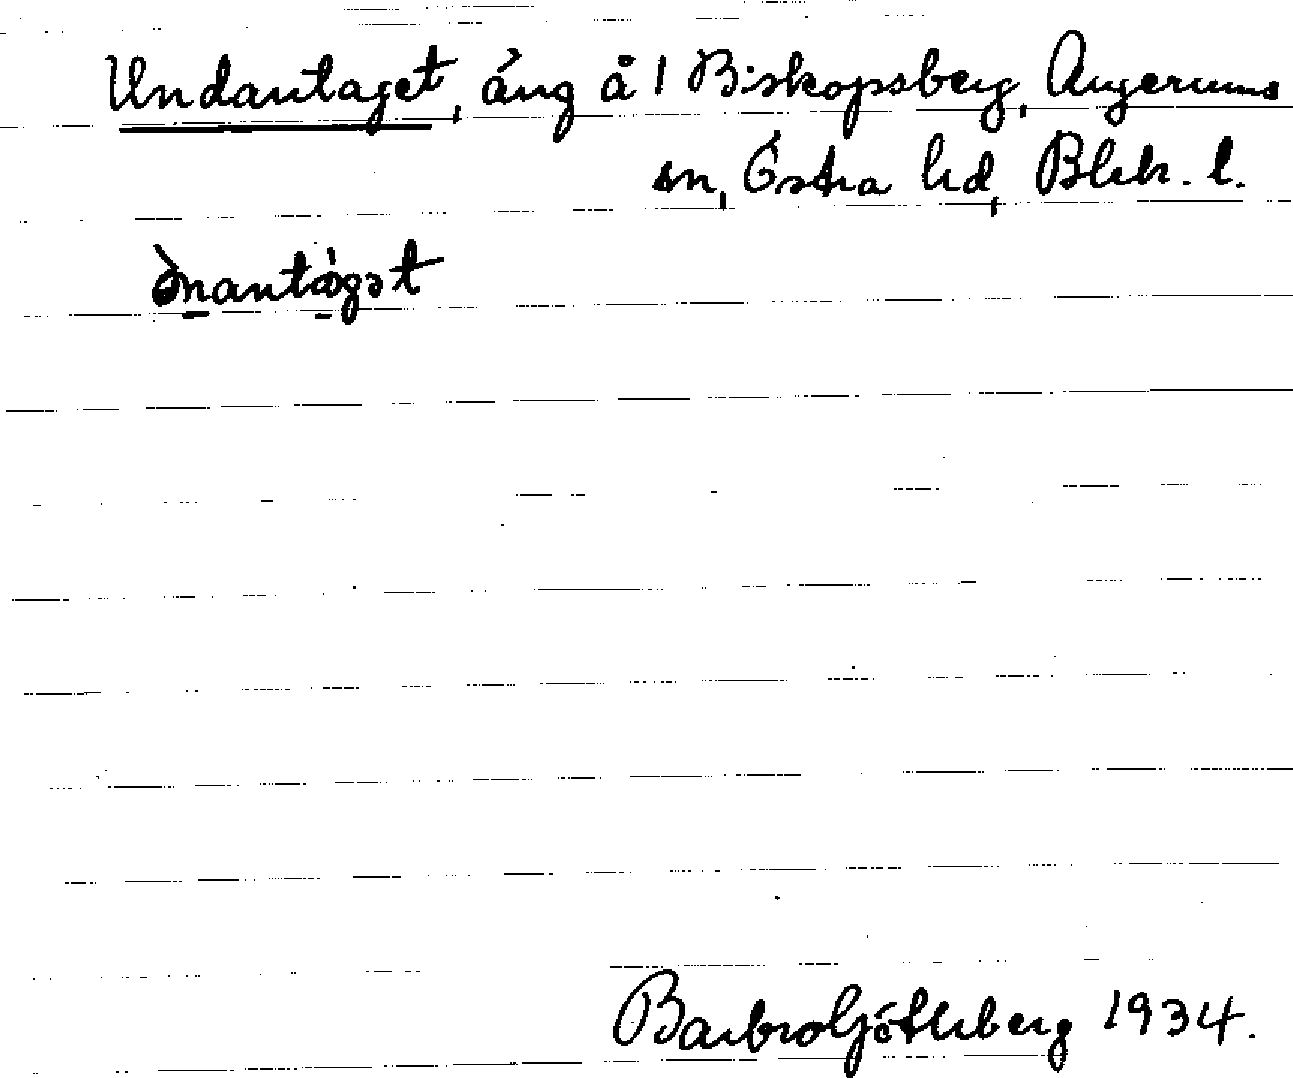 Undantaget, äng å 1 Biskopsberg, Augerums
sn, Östra hd, Blek. l.
ònantàgət
Barbro Götheberg 1934.